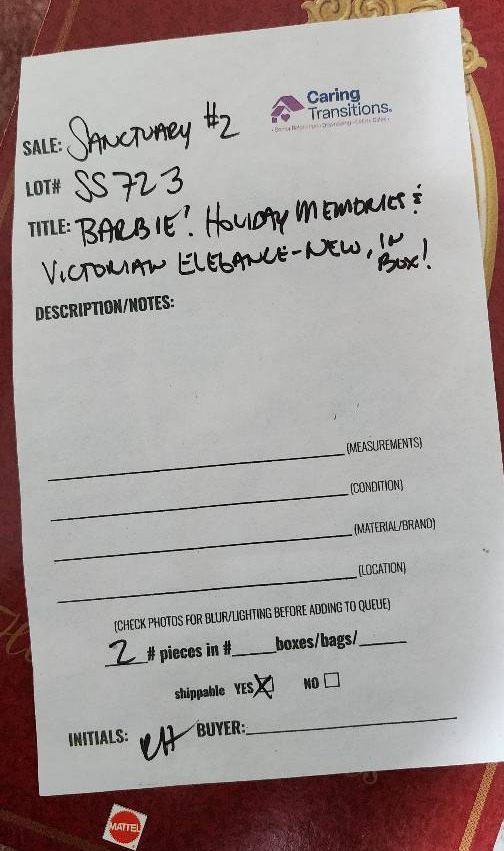 Caring
Transitions.
SALE: SANCTUARY #2
LOT# SS723
TITLE: BARBIE! HOLIDAY MEMORIES &
VICTORIAN ELEGANCE-NEW, IN
BOX!
DESCRIPTION/NOTES:
(MEASUREMENTS)
(CONDITION)
(MATERIAL/BRAND)
(LOCATION)
(CHECK PHOTOS FOR BLUR/LIGHTING BEFORE ADDING TO QUEUE)
2 # pieces in #____boxes/bags/____
shippable YES NO
INITIALS: RH BUYER:
MATTEL